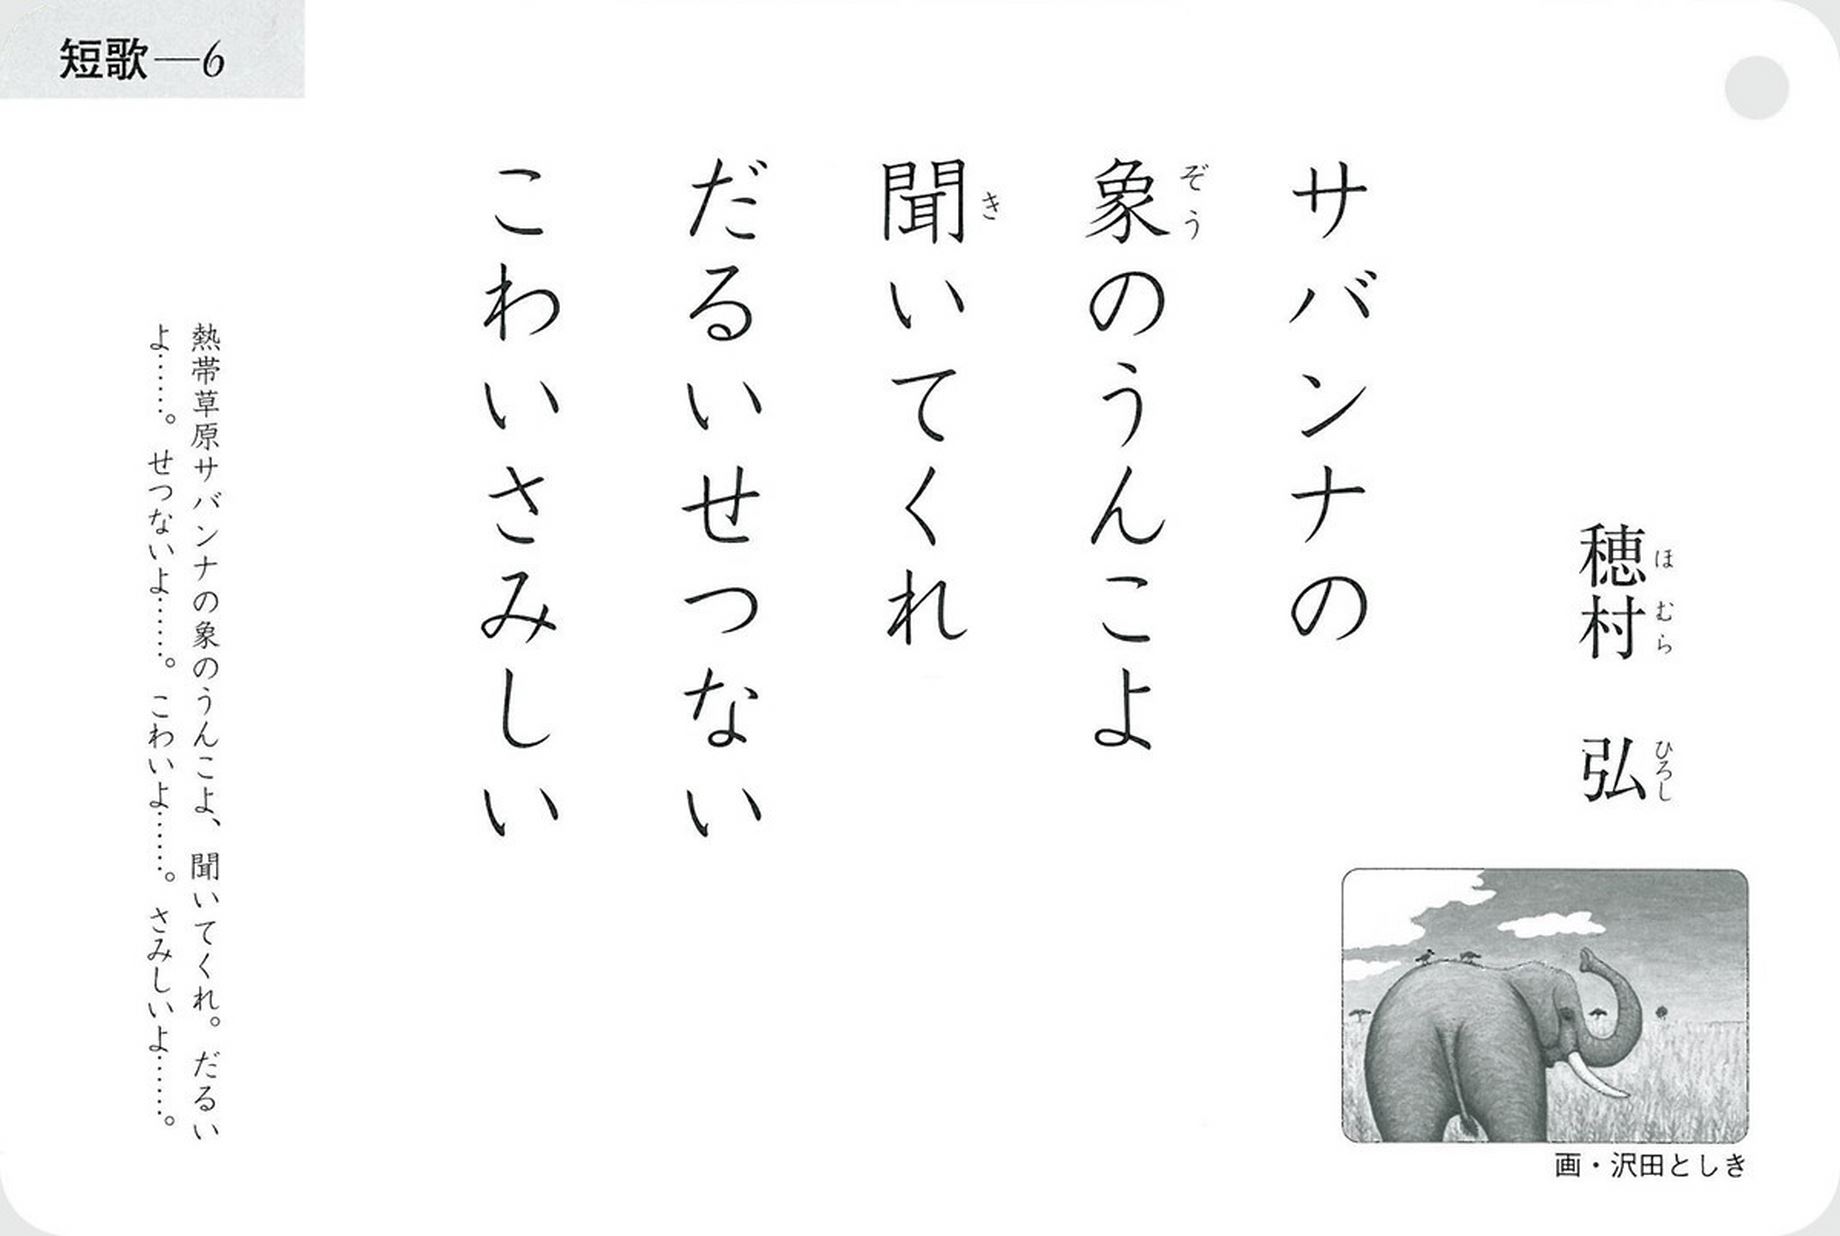 短歌―6
穂村 弘
ほむら ひろし
サバンナの
象のうんこよ
ぞう
聞いてくれ
き
だるいせつない
こわいさみしい
熱帯草原サバンナの象のうんこよ、聞いてくれ。だるい
よ……。せつないよ……。こわいよ……。さみしいよ……。
画・沢田としき